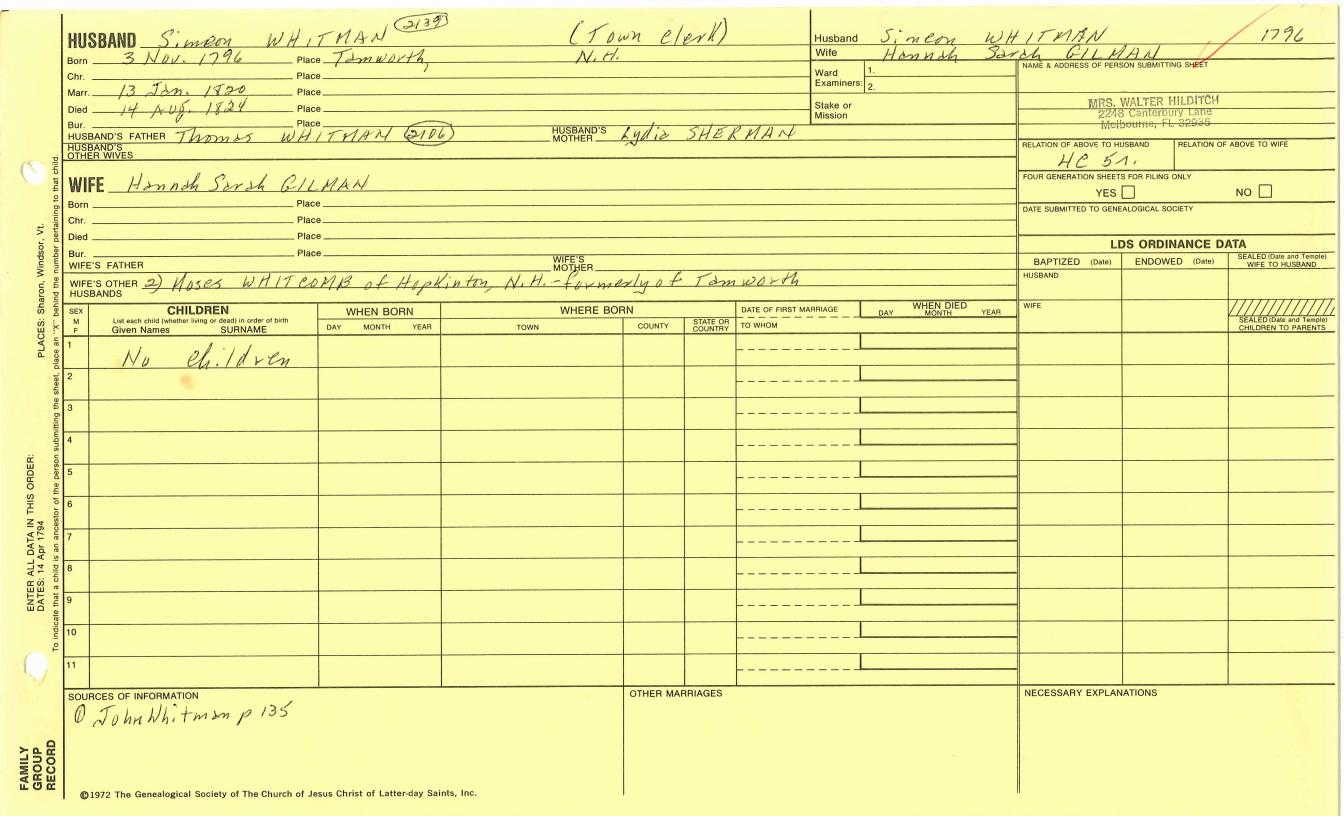 HUSBAND Simeon WHITMAN (2139) (Town Clerk)
Born 3 Nov. 1796 Place Tamworth, N.H.
Chr. Place
Marr. 13 Jan. 1820 Place
Died 14 Aug. 1824 Place
Bur. Place
HUSBAND'S FATHER Thomas WHITMAN (2106) HUSBAND'S MOTHER Lydia SHERMAN
HUSBAND'S OTHER WIVES
WIFE Hannah Sarah GILMAN
Born Place
Chr. Place
Died Place
Bur. Place
WIFE'S FATHER WIFE'S MOTHER
WIFE'S OTHER HUSBANDS 2) Moses WHITCOMB of Hopkinton, N.H. - formerly of Tamworth
Husband Simeon WHITMAN 1796
Wife Hannah Sarah GILMAN
Ward Examiners: 1.
2.
Stake or Mission
NAME & ADDRESS OF PERSON SUBMITTING SHEET
MRS. WALTER HILDITCH
2248 Canterbury Lane
Melbourne, FL 32935
RELATION OF ABOVE TO HUSBAND RELATION OF ABOVE TO WIFE
HC 5r.
FOUR GENERATION SHEETS FOR FILING ONLY
YES NO
DATE SUBMITTED TO GENEALOGICAL SOCIETY
LDS ORDINANCE DATA
BAPTIZED (Date) ENDOWED (Date) SEALED (Date and Temple) WIFE TO HUSBAND
HUSBAND
WIFE
SEALED (Date and Temple) CHILDREN TO PARENTS
SEX M F
CHILDREN
List each child (whether living or dead) in order of birth
Given Names SURNAME
WHEN BORN
DAY MONTH YEAR
WHERE BORN
TOWN COUNTY STATE OR COUNTRY
DATE OF FIRST MARRIAGE
TO WHOM
WHEN DIED
DAY MONTH YEAR
1 No children
2
3
4
5
6
7
8
9
10
11
SOURCES OF INFORMATION
① John Whitman p 135
OTHER MARRIAGES
NECESSARY EXPLANATIONS
©1972 The Genealogical Society of The Church of Jesus Christ of Latter-day Saints, Inc.
FAMILY GROUP RECORD
ENTER ALL DATA IN THIS ORDER:
DATES: 14 Apr 1794
PLACES: Sharon, Windsor, Vt.
To indicate that a child is an ancestor of the person submitting the sheet, place an "X" behind the number pertaining to that child.